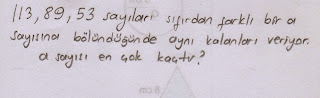 113, 89, 53 sayıları sıfırdan farklı bir a
sayısına bölündüğünde aynı kalanları veriyor.
a sayısı en çok kaçtır?
6 cm